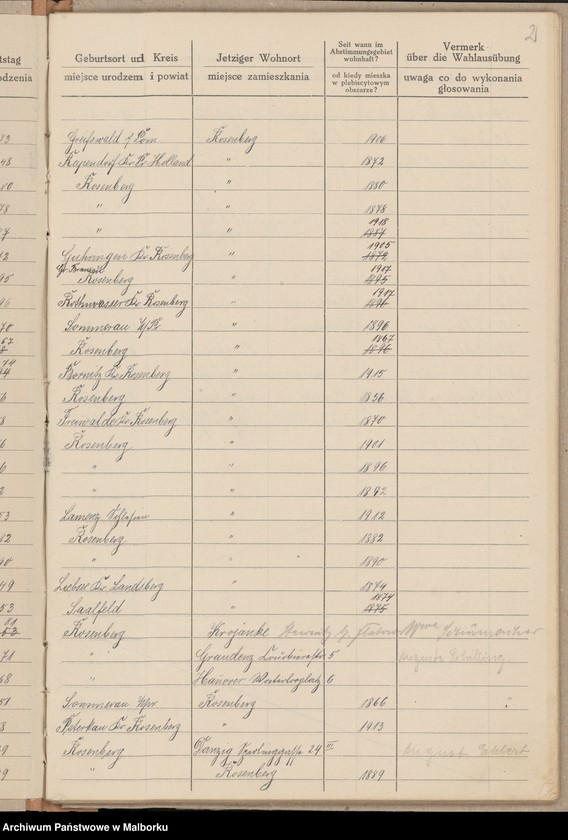 21
tstag
odzenia
Geburtsort und Kreis
miejsce urodzem i powiat
Jetziger Wohnort
miejsce zamieszkania
Seit wann im
Abstimmungsgebiet
wohnhaft?
od kiedy mieszka
w plebiscytowym
obszarze?
Vermerk
über die Wahlausübung
uwaga co do wykonania
głosowania
Greifswald Pom Rosenberg 1906
Kr Pr Holland " 1872
Rosenberg " 1880
" " 1878
1918
" " 1887
1905
Guhringen Kr Rosenberg " 1872
1917
Rosenberg " 1895
1917
Rothwasser Kr Rosenberg "
Sommerau W/Pr " 1896
1867
Rosenberg " 1896
Kr Rosenberg " 1915
Rosenberg " 1856
Freiwalde Kr Rosenberg " 1870
Rosenberg " 1901
" " 1896
" " 1892
Schlesien " 1912
Rosenberg " 1882
" " 1890
Kr Landsberg " 1874
1874
Saalfeld " 1875
Rosenberg Krojanke
" Graudenz 5
" Hanover Waterlooplatz 6
Sommerau Wpr Rosenberg 1866
Peterkau Kr Rosenberg " 1913
Rosenberg Danzig 24 III August
" Rosenberg 1889
Archiwum Państwowe w Malborku